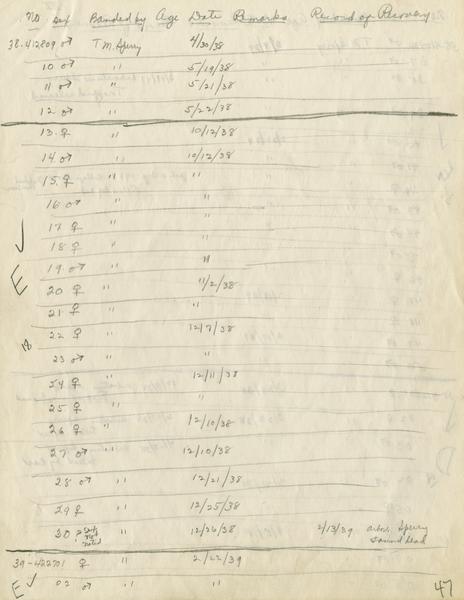 No Sex Banded by Age Date Remarks Record of Recovery
38-412809 ♂ T.M. Sperry 4/30/38
10 ♂ " 5/19/38
11 ♂ " 5/21/38
12 ♂ " 5/22/38
13 ♀ " 10/12/38
14 ♂ " 10/12/38
15 ♀ " "
16 ♂ " "
17 ♀ " "
18 ♀ " "
19 ♂ " "
E 20 ♀ " 11/2/38
21 ♀ " "
18 22 ♀ " 12/7/38
23 ♂ " "
24 ♀ " 12/11/38
25 ♀ " "
26 ♀ " 12/10/38
27 ♂ " 12/10/38
28 ♂ " 12/21/38
29 ♀ " 12/25/38
30 ? Sex Not Noted " 12/26/38 2/13/39 Sperry
found dead
39-422701 ♀ " 2/22/39
E 02 ♂ " "
47